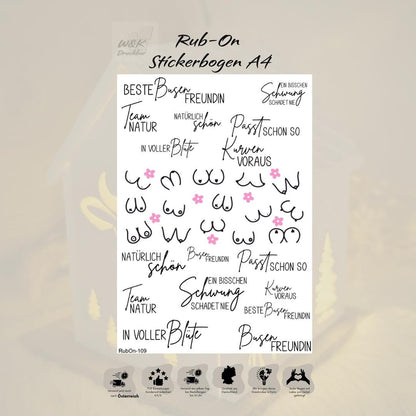 W&K
Druckbar
Rub-On
Stickerbogen A4
BESTE Busen
FREUNDIN
EIN BISSCHEN
Schwung
SCHADET NIE
Team
NATUR
NATÜRLICH
schön
Passt SCHON SO
IN VOLLER Blüte
Kurven
VORAUS
NATÜRLICH
schön
Busen
FREUNDIN
Passt SCHON SO
Team
NATUR
EIN BISSCHEN
Schwung
SCHADET NIE
Kurven
VORAUS
BESTE Busen
FREUNDIN
IN VOLLER Blüte
Busen
FREUNDIN
RubOn-109
Österreich